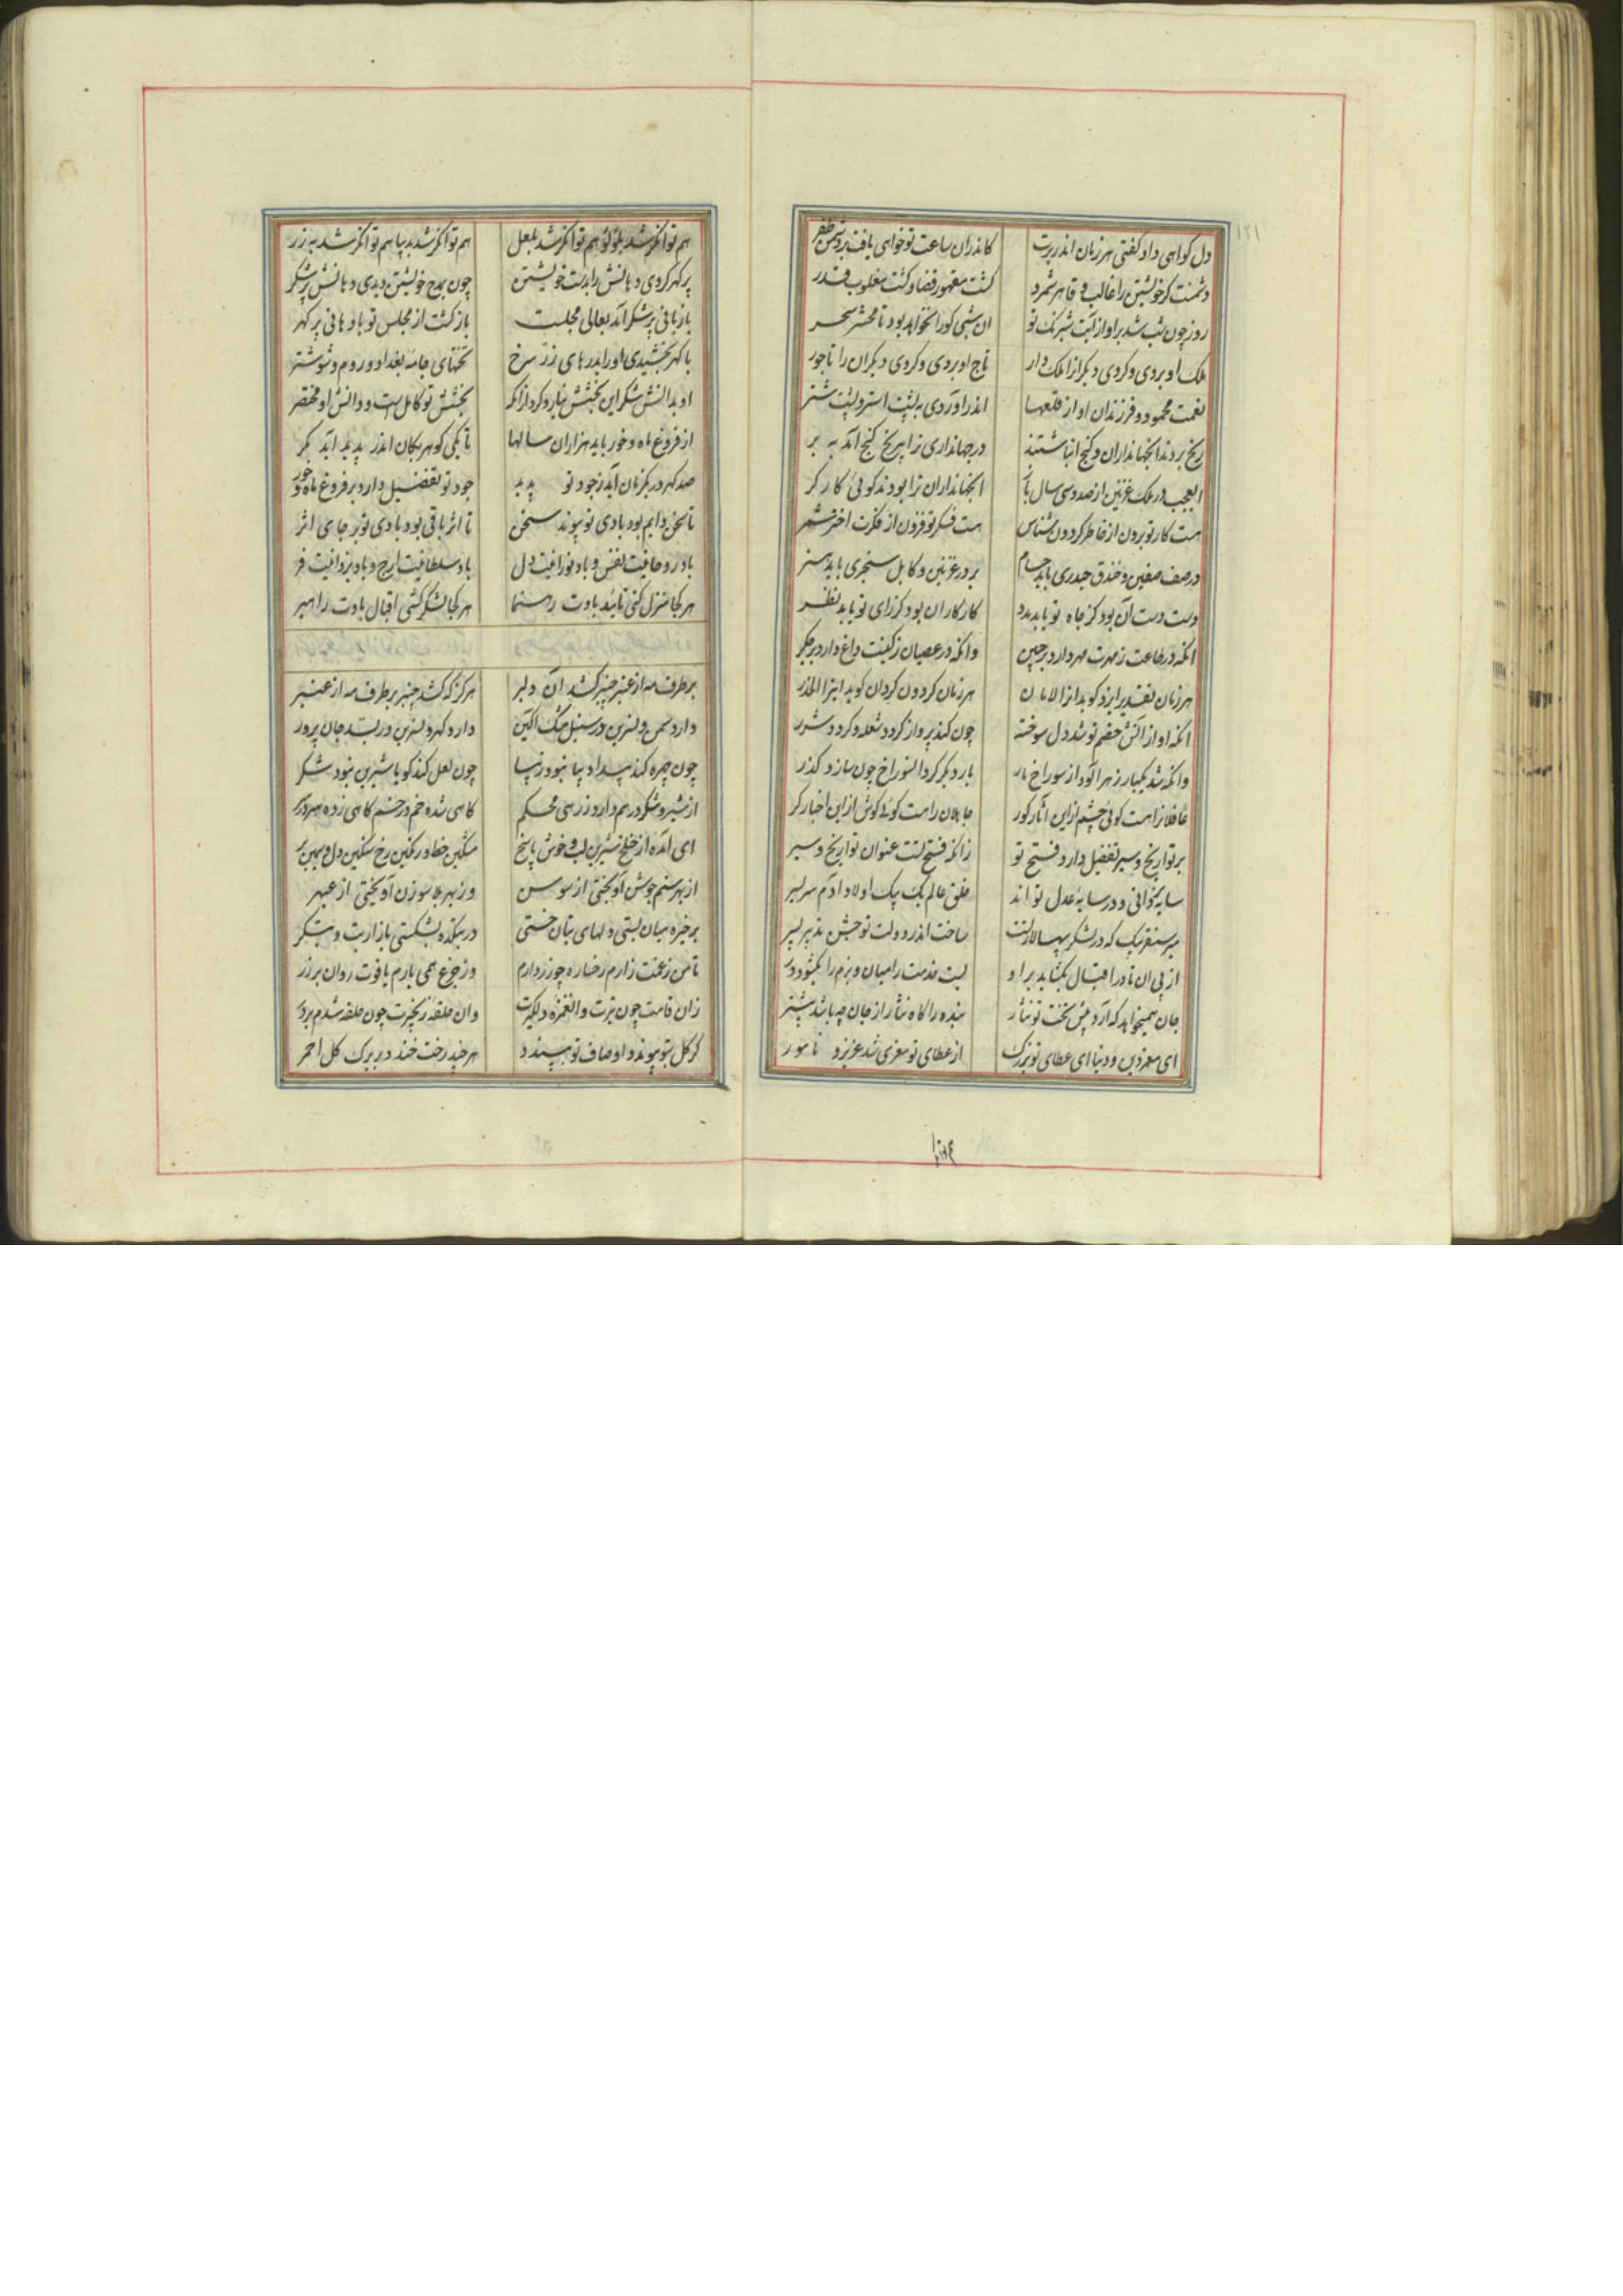 دل کواهی داد کفتی هر زمان اندر برت کاندران ساعت تو خواهی یافت بر دشمن ظفر
دشمنت کر خویشتن را غالب و قاهر شمرد کشت مقهور قضا و کشت مغلوب قدر
روز چون شب شد بر او از آیت شبرنک تو ان شبی کورا نخواهد بود تا محشر سحر
ملک او بردی و کردی دیکر انرا ملک دار تاج او بردی و کردی دیکران را تاجور
نعمت محمود و فرزندان او از قلعها اندر آوردی به پشت استر و پشت شتر
رنج بردند انجهانداران و کنج انباشتند در جهانداری ترا بیرنج کنج آمد به بر
العجب در ملک غزنین از صد و سی سال باز انجهانداران ترا بودند کوئی کارکر
هست کار تو برون از خاطر کردون شناس هست فکر تو فزون از فکرت اختر شمر
در صف صفین و خندق حیدری باید حسام بر در غزنین و کابل سنجری باید هنر
دست دست آن بود کز جاه تو یابد مدد کار کار ان بود کز رای تو یابد نظر
انکه در طاعت ز مهرت مهر دارد بر جبین وانکه در عصیان ز کینت داغ دارد بر جکر
هر زمان تقدیر ایزد کوید انرا الامان هر زمان کردون کردان کوید اینرا الحذر
انکه او از آتش خصم تو شد دل سوخته چون کند پرواز کرد شعله و کرد شرر
وانکه شد یکبار زهر آلود از سوراخ مار بار دیکر کرد انسوراخ چون سازد کذر
غافلانرا هست کوئی چشم از این آثار کور جاهلان را هست کوئی کوش از این اخبار کر
بر تواریخ و سیر تفضیل دارد فتح تو زانکه فتح تست عنوان تواریخ و سیر
سایه یزدانی و در سایه عدل تو اند خلق عالم یک بیک اولاد آدم سر بسر
میر سنقر بیک که در لشکر سپهسالار تست ساخت اندر دولت تو جشن
از پی ان تا در اقبال بکشاید بر او بست خدمت را میان و بزم را بکشود در
جان همیخواهد که آرد پیش تخت تو نثار بنده را کاه نثار از جان چه باشد بیشتر
ای معز دین و دنیا ای عطای تو بزرک از عطای تو معزی شد عزیز و نامور
هم توانکر شد بلؤلؤ هم توانکر شد بلعل هم توانکر شد بدیبا هم توانکر شد به زر
پر کهر کردی دهانش را بدست خویشتن چون بمدح خویشتن دیدی دهانش پر شکر
با زبانی پر شکر آمد بعالی مجلست باز کشت از مجلس تو با دهانی پر کهر
با کهر بخشیدی او را بدرهای زر سرخ تختهای جامه بغداد و روم و شوشتر
او بدانش شکر این بخشش نیارد کرد از آنک بخشش تو کامل است و دانش او مختصر
از فروغ ماه و خور باید هزاران سالها تا یکی کوهر بکان اندر پدید آید مکر
صد کهر در یکزمان آید ز جود تو پدید جود تو تفضیل دارد بر فروغ ماه و خور
تا سخن دایم بود بادی تو پیوند سخن تا اثر باقی بود بادی تو بر جای اثر
باد روحانیت نفس و باد نورانیت دل باد سلطانیت ارج و باد یزدانیت فر
هر کجا منزل کنی تائید بادت رهنما هر کجا لشکر کشی اقبال بادت راهبر
بر طرف مه از عنبر چنبر کشد آن دلبر هرکز که کشد چنبر بر طرف مه از عنبر
دارد سمن و نسرین در سنبل مشک آکین دارد کهر و نسرین در بسد جان پرور
چون چهره کند پیدا دیبا نبود زیبا چون لعل کند کویا شیرین نبود شکر
از شیر و شکر در هم دارد زرهی محکم کاهی شده خم در خم کاهی زده سر در بر
ای آمده از خلخ شیرین لب و خوش پاسخ مشکین خط و رنکین رخ سنکین دل و سیمین بر
از بهر ستم جوشن آویختی از سوسن وز بهر بلا سوزن آویختی از عبهر
بر خیره میان بستی دلهای بتان خستی در بتکده بشکستی بازار بت و بتکر
تا من ز غمت زارم رخساره چو زر دارم وز جزع همی بارم یاقوت روان بر زر
زان قامت چون تیرت وان غمزه دلکیرت وان حلقه زنجیرت چون حلقه شدم بر در
کر کل بتو پیوندد اوصاف تو بپسندد هر چند رخت خندد بر برک کل احمر